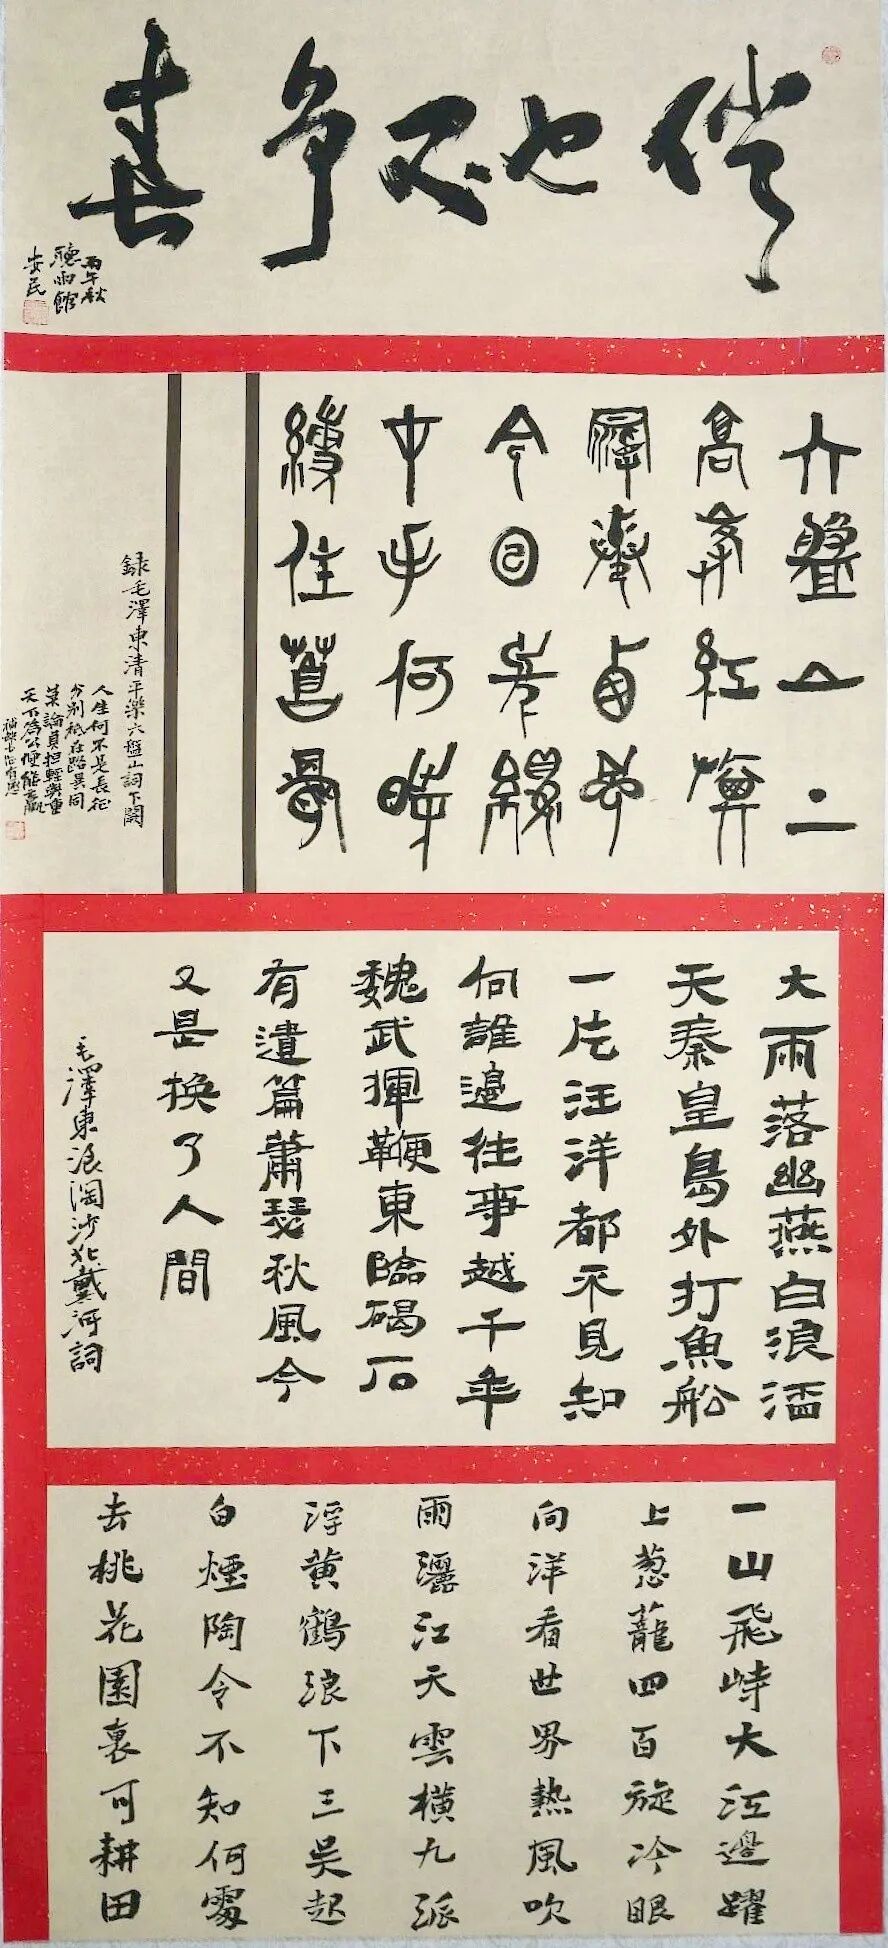 俏也不争春
丙午秋
聽雨館
安民
六盤山上
高峯紅旗
漫卷西風
今日長纓
在手何時
縛住蒼龍
録毛澤東清平樂六盤山詞下闋
人生何不是長征
分别祇在路異同
莫論負担輕與重
天下為公便能贏
大雨落幽燕白浪滔
天秦皇島外打魚船
一片汪洋都不見知
向誰邊往事越千年
魏武揮鞭東臨碣石
有遺篇蕭瑟秋風今
又是换了人間
毛澤東浪淘沙北戴河詞
一山飛峙大江邊躍
上葱蘢四百旋冷眼
向洋看世界熱風吹
雨灑江天雲橫九派
浮黄鶴浪下三吴起
白煙陶令不知何處
去桃花園裏可耕田